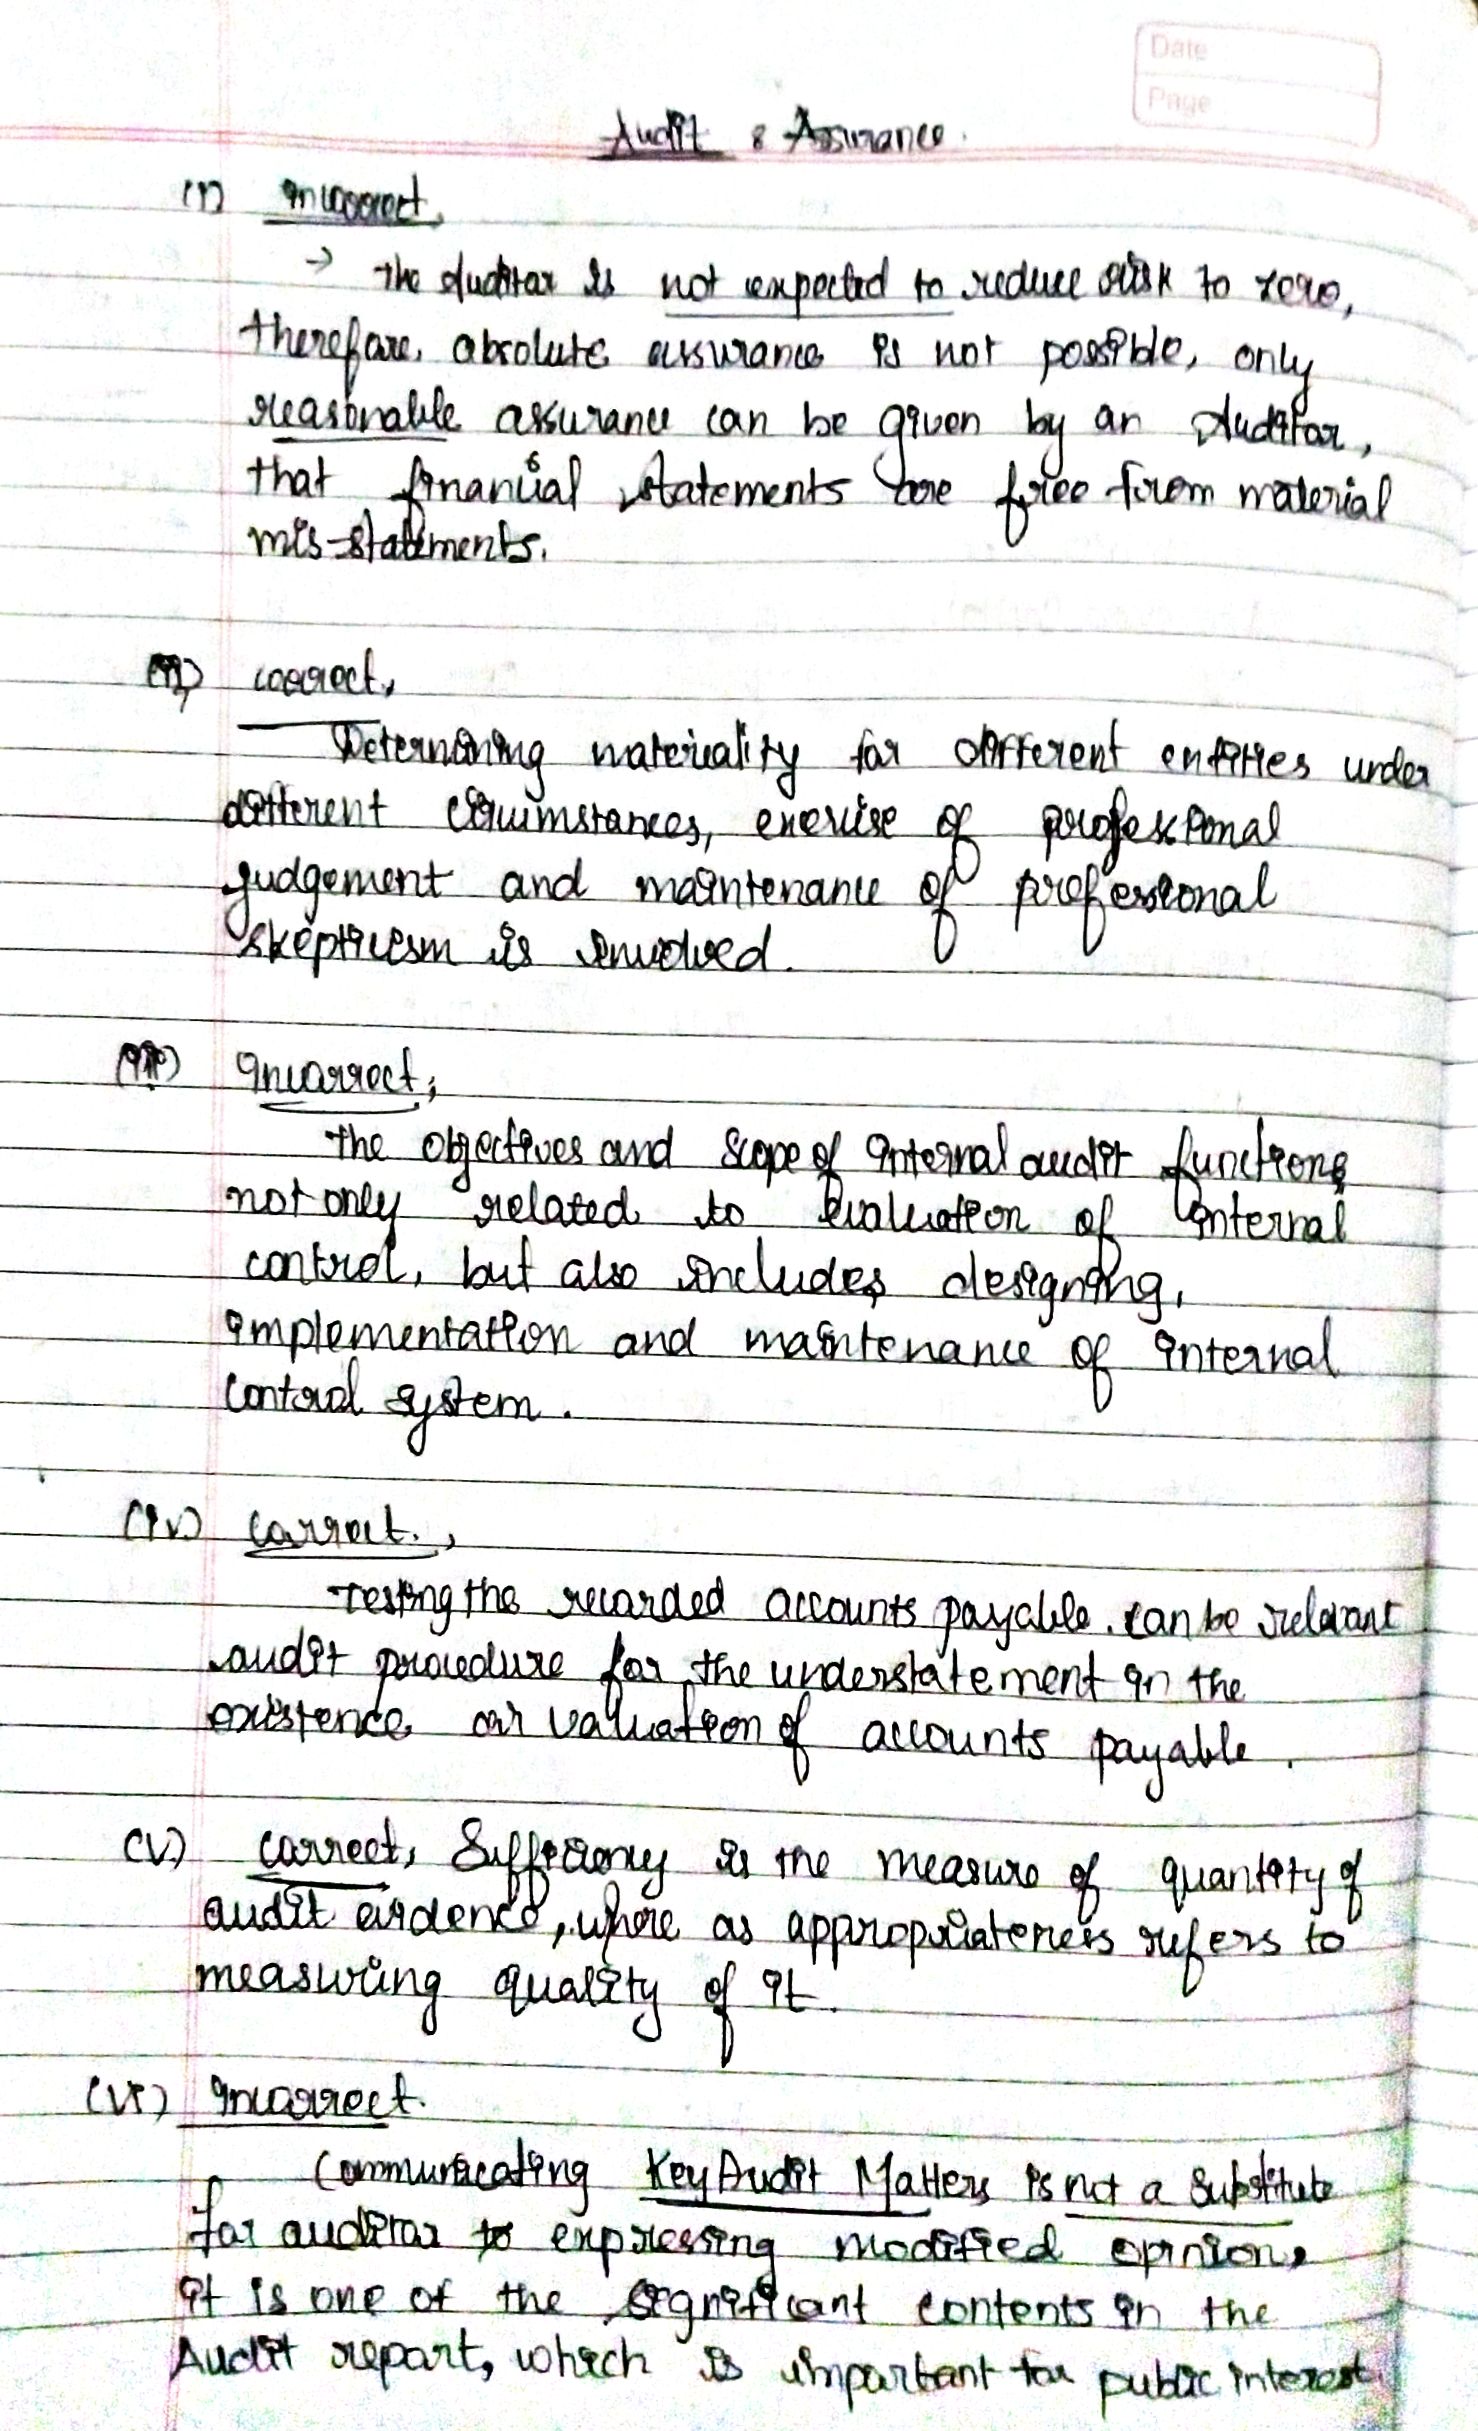 Date
Page
Audit & Assurance.
(i) Incorrect,
→ The Auditor is not expected to reduce risk to zero,
therefore, absolute assurance is not possible, only
reasonable assurance can be given by an Auditor,
that financial statements are free from material
mis-statements.
(ii) correct,
Determining materiality for different entities under
different circumstances, exercise of professional
judgement and maintenance of professional
skepticism is involved.
(iii) Incorrect;
The objectives and scope of internal audit functions
not only related to evaluation of internal
control, but also includes designing,
implementation and maintenance of internal
control system.
(iv) correct.,
Testing the recorded accounts payable. can be relevant
audit procedure for the understatement in the
existence or valuation of accounts payable.
(v) correct, Sufficiency is the measure of quantity of
audit evidence, where as appropriateness refers to
measuring quality of it.
(vi) Incorrect.
Communicating Key Audit Matters is not a substitute
for auditor expressing modified opinion,
it is one of the significant contents in the
Audit report, which is important for public interest.